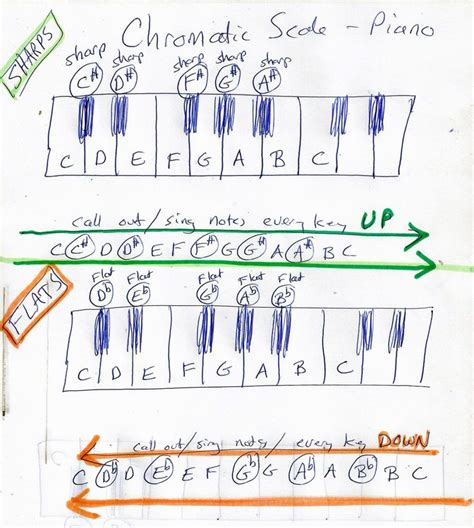 Chromatic Scale - Piano
SHARPS
sharp sharp sharp sharp sharp
C# D# F# G# A#
C D E F G A B C
call out/sing notes every key UP
C C# D D# E F F# G G# A A# B C
FLATS
Flat Flat Flat Flat Flat
Db Eb Gb Ab Bb
C D E F G A B C
call out/sing notes/every key DOWN
C Db D Eb E F Gb G Ab A Bb B C